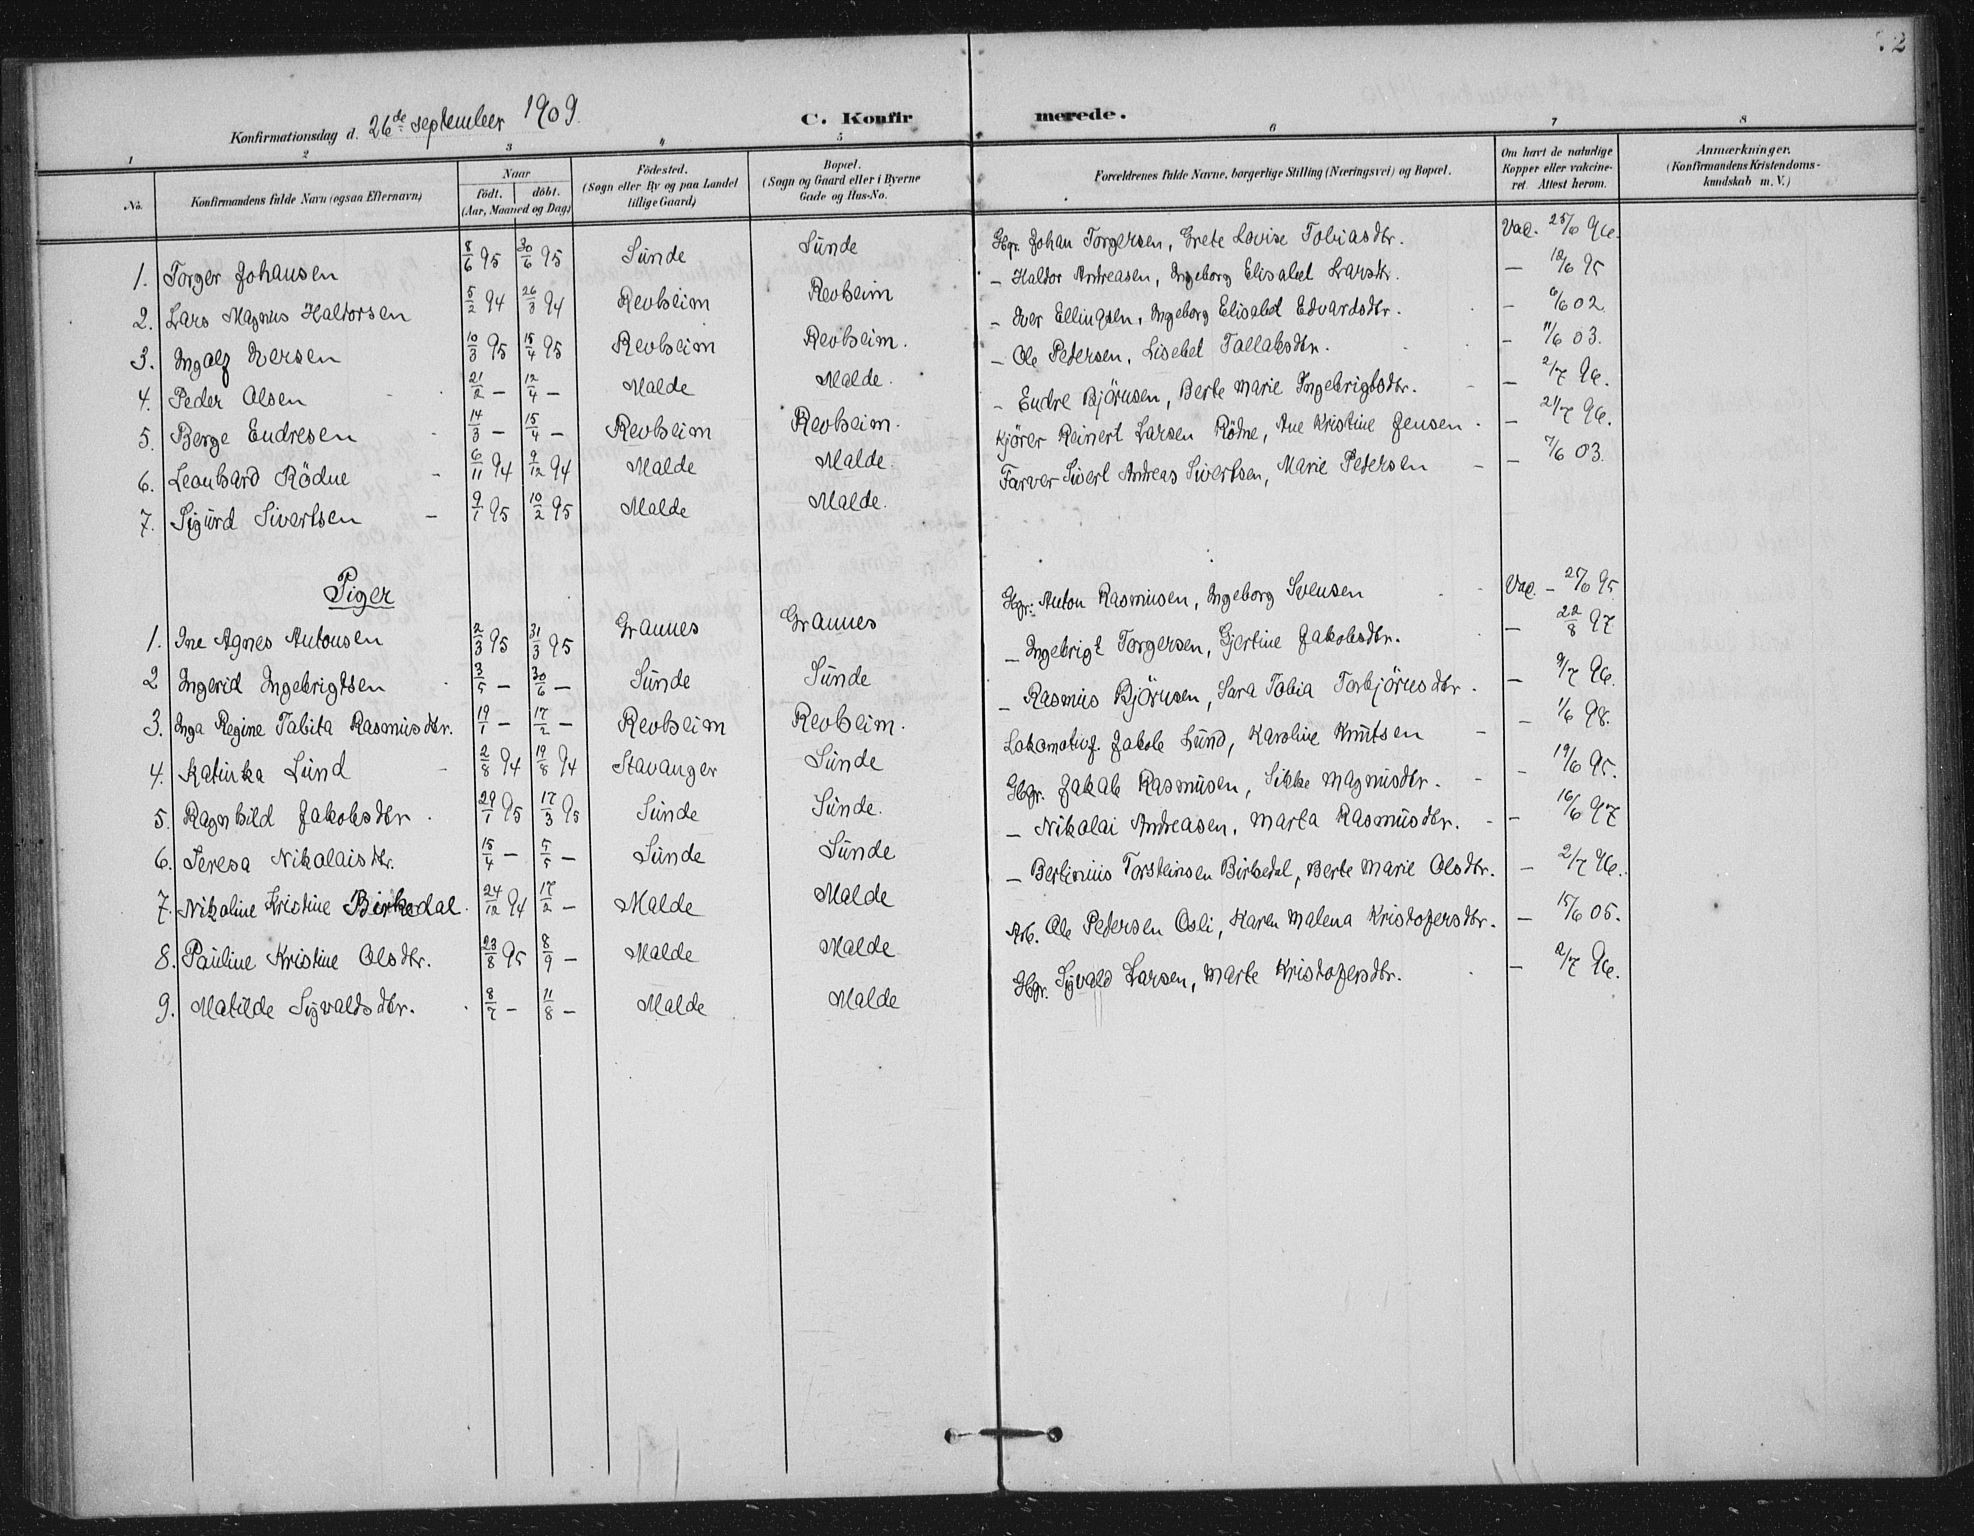 72
Konfirmationsdag d. 26de september 1909. C. Konfirmerede.
1 2 3 4 5 6 7 8
No. Konfirmandens fulde Navn (ogsaa Efternavn) Naar født. døbt. (Aar, Maaned og Dag) Fødested. (Sogn eller By og paa Landet tillige Gaard) Bopæl. (Sogn og Gaard eller i Byerne Gade og Hus-No. Forældrenes fulde Navne, borgerlige Stilling (Næringsvei) og Bopæl. Om havt de naturlige Kopper eller vakcineret. Attest herom. Anmærkninger. (Konfirmandens Kristendomskundskab m. V.)
1. Torger Johansen 8/6 95 30/6 95 Sünde Sünde Gbgr. Johan Torgersen, Grete Lovise Tobiasdtr. Vac. 25/6 96.
2. Lars Magnus Haldorsen 5/2 94 26/3 94 Revheim Revheim – Haldor Andreasen, Ingeborg Elisabet Larsdtr. – 18/6 95
3. Ingolf Iversen 10/3 95 15/4 95 Revheim Revheim. – Iver Ellingsen, Ingeborg Elisabet Edvardsdtr. – 6/6 02.
4. Peder Olsen 21/2 – 12/4 – Malde Malde. – Ole Petersen, Lisebet Tollaksdtr. – 11/6 03.
5. Berge Endresen 14/3 – 15/4 – Revheim Revheim. – Endre Björnsen, Berte Marie Ingebrigtsdtr. – 2/7 96.
6. Leonhard Rödne – 6/11 94 9/12 94 Malde Malde. Kjörer Reinert Larsen Rödne, Ane Kristine Jensen. – 21/7 96.
7. Sigurd Sivertsen – 9/1 95 10/2 95 Malde Malde. Farver Sivert Andreas Sivertsen, Marie Petersen – – 7/6 03.
Piger
1. Ine Agnes Antonsen 2/3 95 31/3 95 Grannes Grannes Gbgr: Anton Rasmusen, Ingeborg Svensen Vac. – 25/6 95
2 Ingerid Ingebrigtsen 3/5 – 30/6 – Sünde Sünde – Ingebrigt Torgersen, Gjertine Jakobsdtr. – 22/8 97
3. Inga Regine Tabita Rasmusdtr. 19/1 – 17/2 – Revheim Revheim. – Rasmus Björnsen, Sara Tobia Torbjörnsdtr. – 9/7 96.
4. Katinka Lund 2/8 94 19/8 94 Stavanger Sünde Lokomotivf. Jakob Lund, Karoline Knutsen – – 1/6 98.
5. Ragnhild Jakobsdtr. 29/1 95 17/3 95 Sünde Sünde. Gbgr. Jakob Rasmusen, Sikke Magnusdtr. – – 19/6 95.
6. Teresa Nikolaisdtr. 15/4 – 5/5 – Sünde Sünde – Nikolai Andreasen, Marta Rasmusdtr. – – 16/6 97
7. Nikoline Kristine Birkedal. 24/12 94 17/2 – Malde Malde – Bertinius Torsteinsen Birkedal, Berte Marie Olsdtr. – 2/7 96.
8. Pauline Kristine Olsdtr. 23/8 95 8/9 – Malde Malde Arb. Ole Petersen Osli, Karen Malena Kristofersdtr. – 15/6 05.
9. Matilde Sigvaldsdtr. 8/7 – 11/8 – Malde Malde Gbgr. Sigvald Larsen, Marte Kristofersdtr. – 2/7 96.